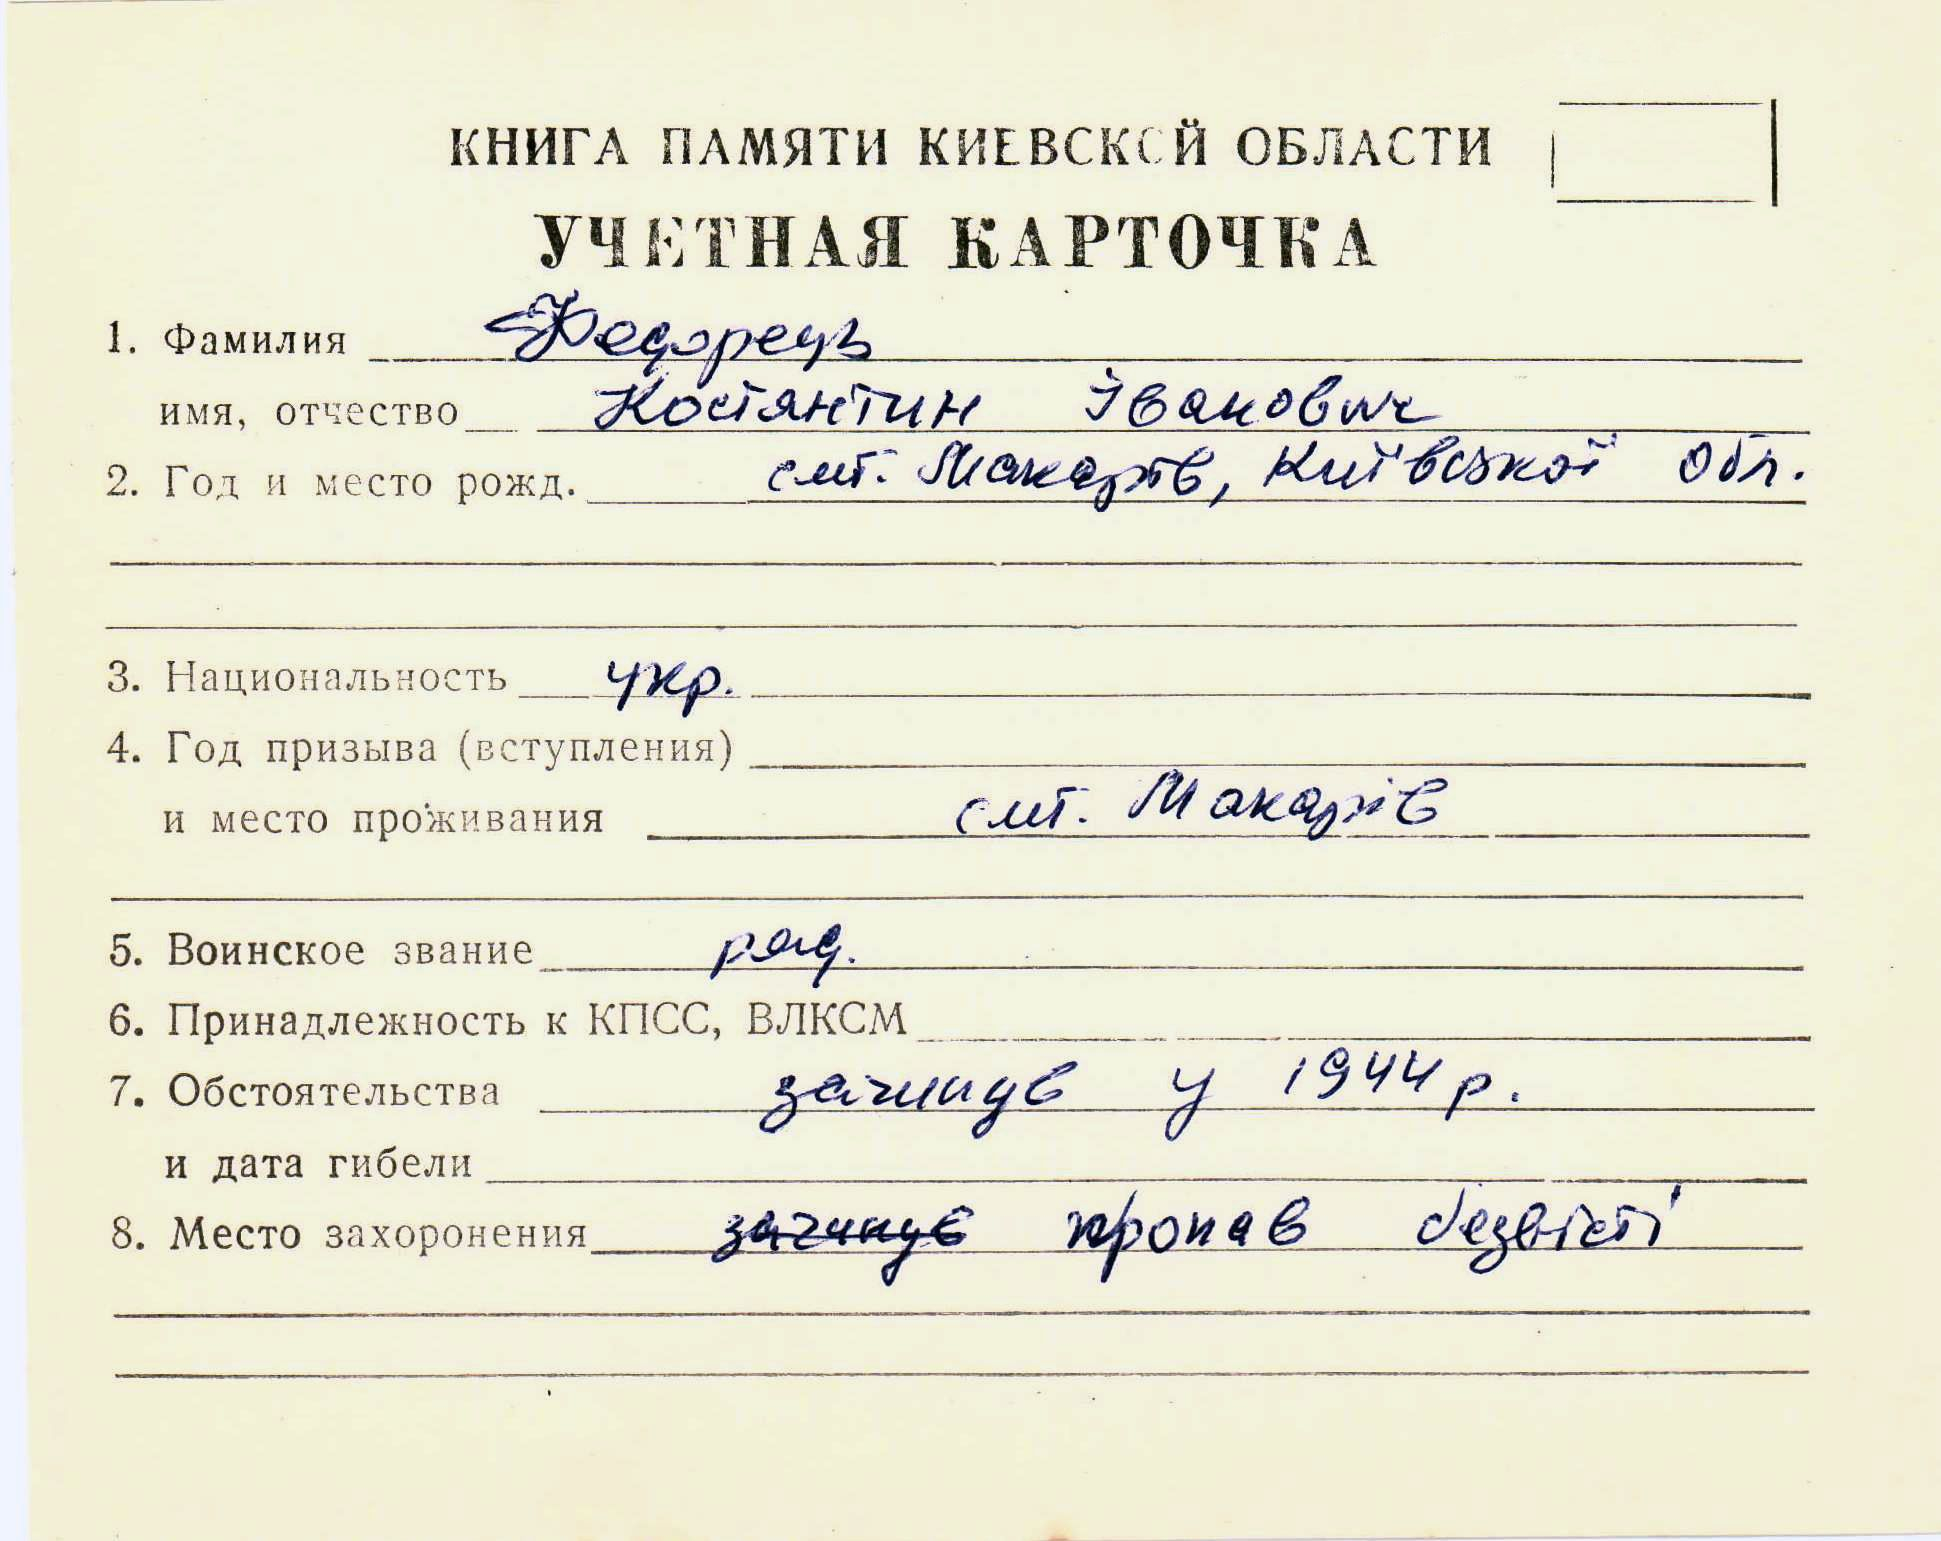 КНИГА ПАМЯТИ КИЕВСКОЙ ОБЛАСТИ
УЧЕТНАЯ КАРТОЧКА
1. Фамилия Федорець
имя, отчество Костянтин Іванович
2. Год и место рожд. смт. Макарів, Київської обл.
3. Национальность укр.
4. Год призыва (вступления)
и место проживания смт. Макарів
5. Воинское звание ряд.
6. Принадлежность к КПСС, ВЛКСМ
7. Обстоятельства загинув у 1944 р.
и дата гибели
8. Место захоронения загинув пропав безвісті